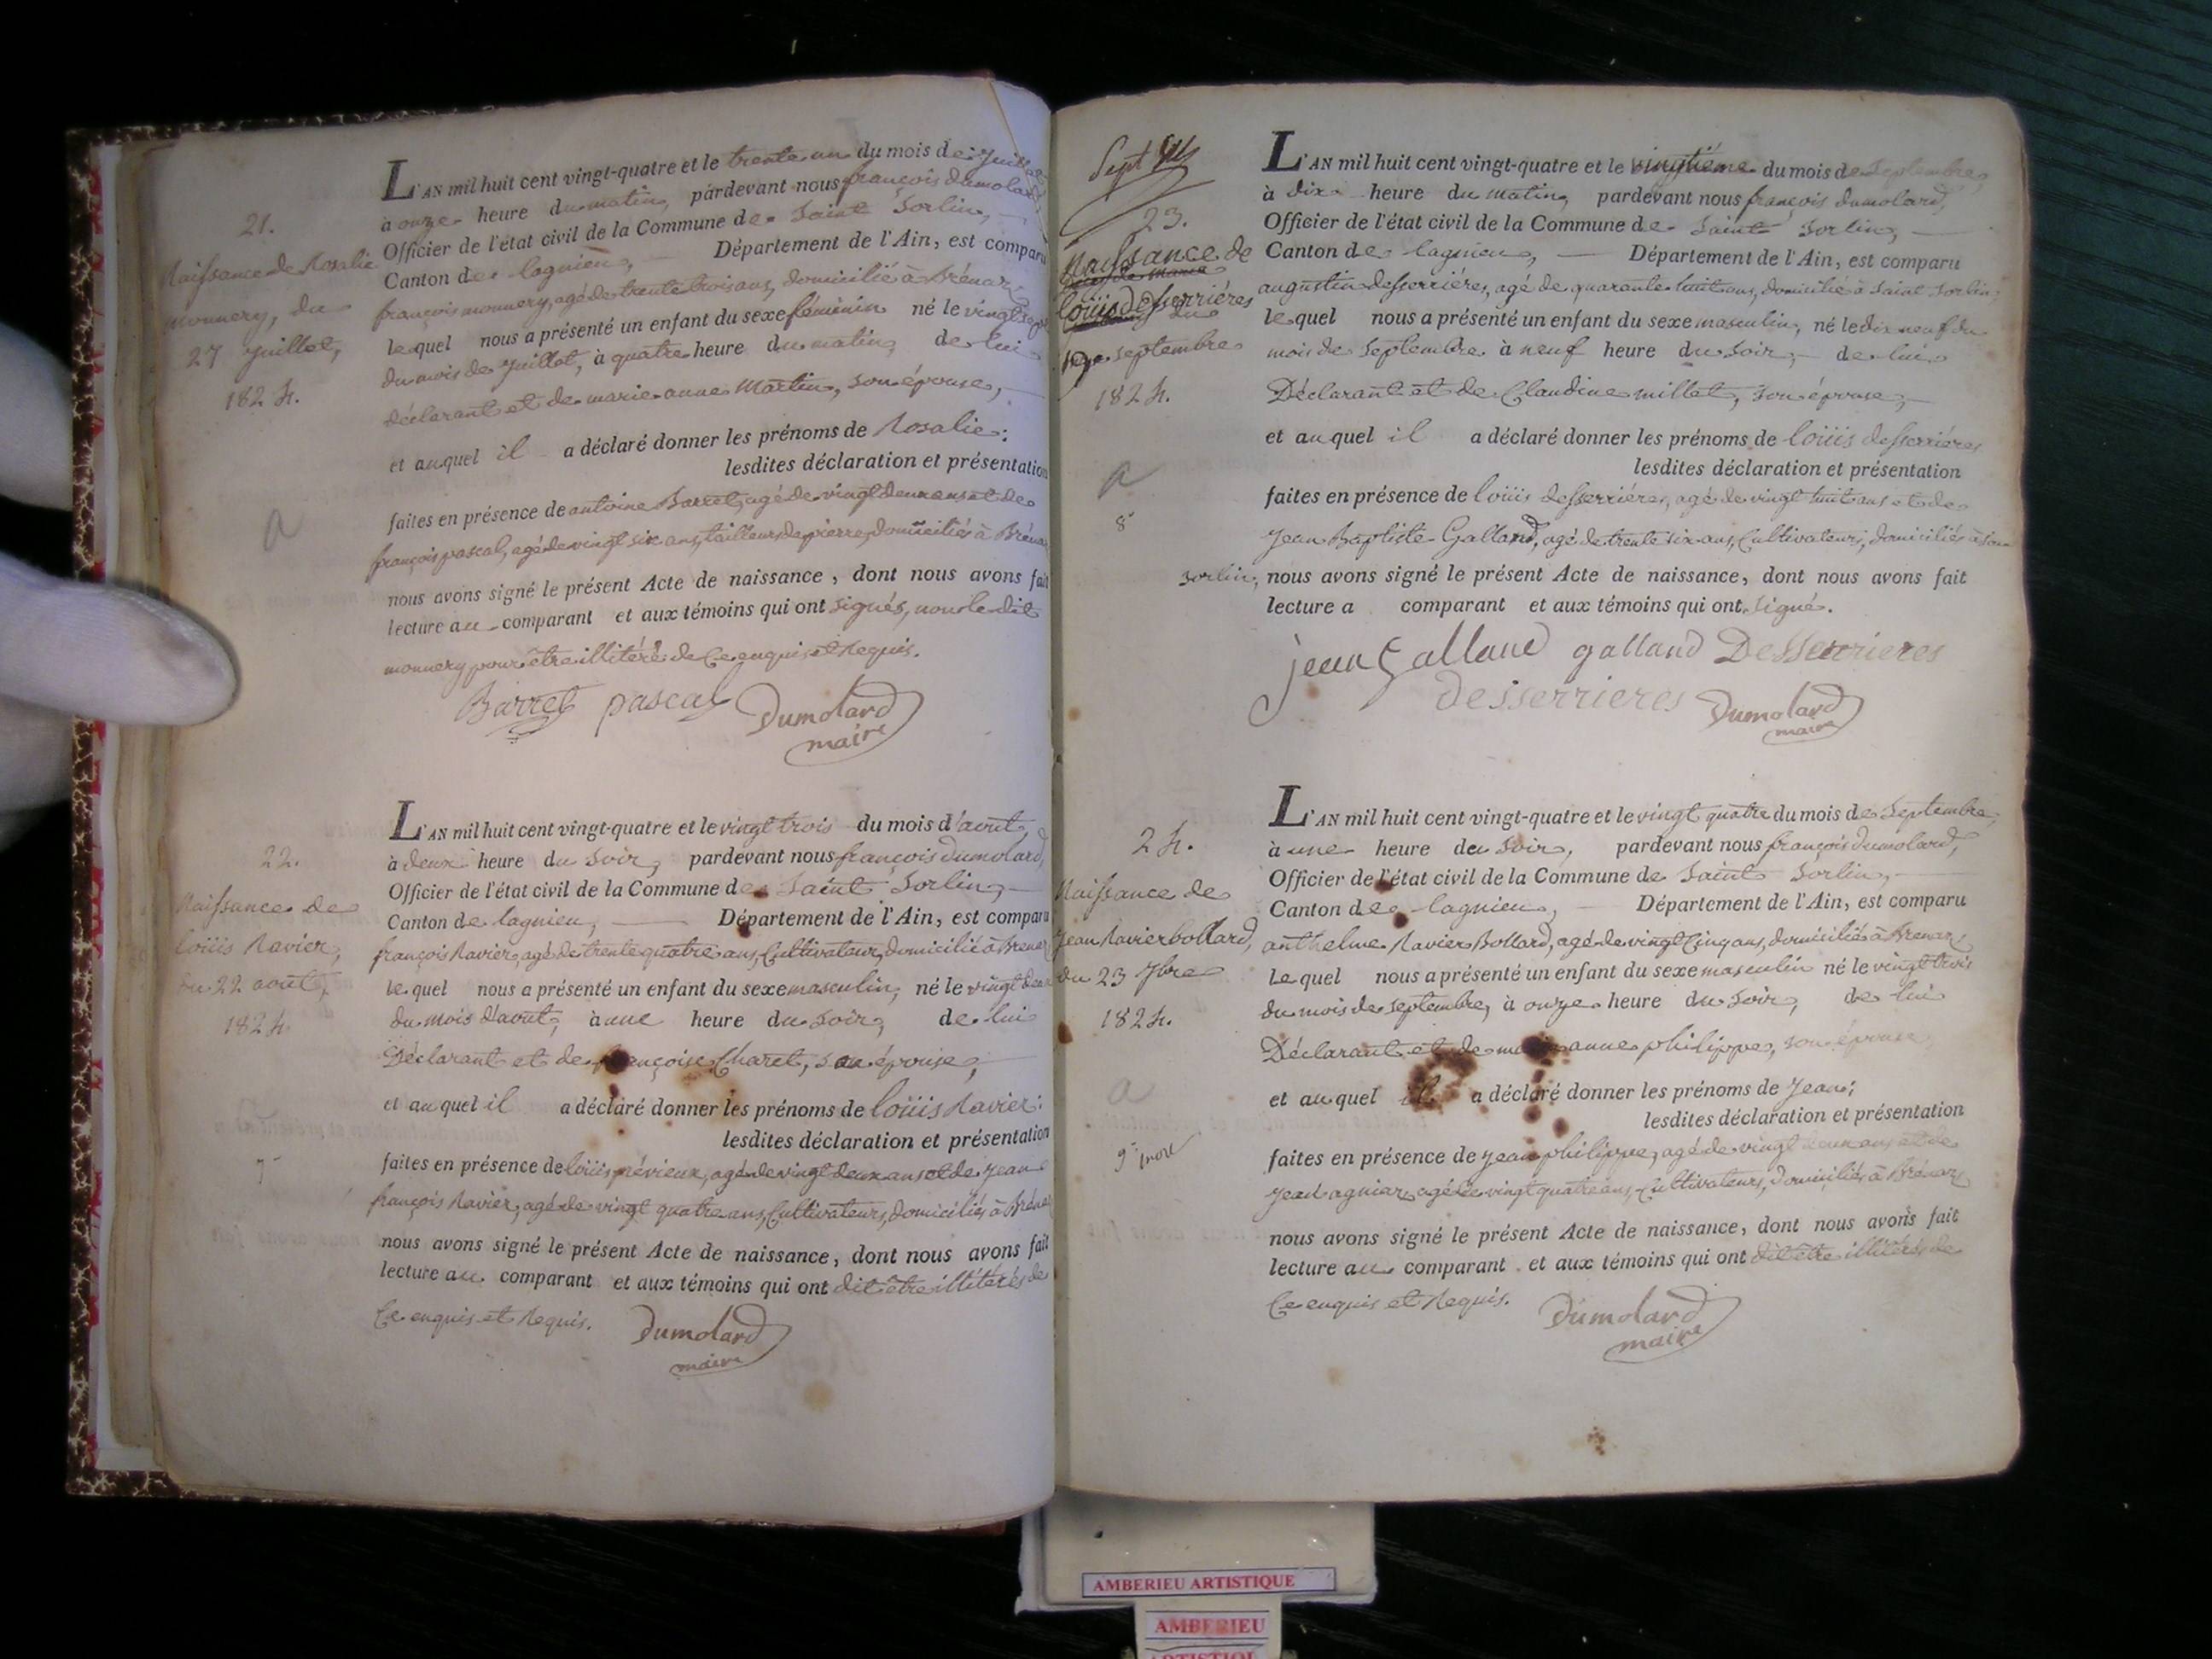 21.
Naissance de Rosalie
monnery, du
27 Juillet,
1824.
a
L'AN mil huit cent vingt-quatre et le trente un du mois de Juillet
à onze heure du matin, pardevant nous françois dumolard
Officier de l'état civil de la Commune de Saint Sorlin,
Canton de lagnieu, Département de l'Ain, est comparu
françois monnery, agé de trente trois ans, domicilié à Brénaz
lequel nous a présenté un enfant du sexe féminin né le vingt sept
du mois de Juillet, à quatre heure du matin, de lui
déclarant et de marie anne Martin, son épouse,
et auquel il a déclaré donner les prénoms de Rosalie:
lesdites déclaration et présentation
faites en présence de antoine Barret, agé de vingt deux ans et de
françois pascal, agé de vingt six ans, tailleurs de pierre, domiciliés à Brénaz
nous avons signé le présent Acte de naissance, dont nous avons fait
lecture au comparant et aux témoins qui ont signés, non le dit
monnery pour être illitéré de Ce enquis et Requis.
Barret pascal Dumolard
maire
22.
Naissance de
loüis Ravier,
du 22 août,
1824
7
L'AN mil huit cent vingt-quatre et le vingt trois du mois d'août,
à deux heure du Soir, pardevant nous françois Dumolard,
Officier de l'état civil de la Commune de Saint Sorlin,
Canton de lagnieu, Département de l'Ain, est comparu
françois Ravier, agé de trente quatre ans, Cultivateur, domicilié à Brenaz
lequel nous a présenté un enfant du sexe masculin, né le vingt deux
du mois d'août, à une heure du Soir, de lui
Déclarant et de françoise Charet, son épouse,
et auquel il a déclaré donner les prénoms de loüis Ravier:
lesdites déclaration et présentation
faites en présence de loüis névieux, agé de vingt deux ans et de Jean
françois Ravier, agé de vingt quatre ans, Cultivateurs, domiciliés à Brénaz
nous avons signé le présent Acte de naissance, dont nous avons fait
lecture au comparant et aux témoins qui ont dit être illitérés de
Ce enquis et Requis. Dumolard
maire
Sept
23.
Naissance de
loüis desserriéres
du
septembre
1824.
a
8
L'AN mil huit cent vingt-quatre et le vingtième du mois de Septembre,
à dix heure du matin, pardevant nous françois dumolard,
Officier de l'état civil de la Commune de Saint Sorlin,
Canton de lagnieu, Département de l'Ain, est comparu
augustin desserriéres, agé de quarante huit ans, domicilié à Saint Sorlin,
lequel nous a présenté un enfant du sexe masculin, né le dix neuf du
mois de Septembre à neuf heure du Soir, de lui
Déclarant et de Claudine millet, son épouse,
et auquel il a déclaré donner les prénoms de loüis desserriéres
lesdites déclaration et présentation
faites en présence de loüis desserriéres, agé de vingt huit ans et de
Jean Baptiste Galland, agé de trente six ans, Cultivateurs, domiciliés à Saint
Sorlin, nous avons signé le présent Acte de naissance, dont nous avons fait
lecture a comparant et aux témoins qui ont signé.
jean Galland galland Desserrieres
desserrieres Dumolard
maire
24.
Naissance de
Jean Ravier bollard,
du 23 7bre
1824.
a
9 mort
L'AN mil huit cent vingt-quatre et le vingt quatre du mois de Septembre,
à une heure du Soir, pardevant nous françois dumolard,
Officier de l'état civil de la Commune de Saint Sorlin,
Canton de lagnieu, Département de l'Ain, est comparu
anthelme Ravier Bollard, agé de vingt Cinq ans, domicilié à Brenaz
Lequel nous a présenté un enfant du sexe masculin né le vingt trois
du mois de septembre, à onze heure du Soir, de lui
Déclarant et de anne philippe, son épouse,
et auquel il a déclaré donner les prénoms de Jean;
lesdites déclaration et présentation
faites en présence de Jean philippe, agé de vingt deux ans et de
Jean agniaz, agé de vingt quatre ans, Cultivateurs, domiciliés à Brénaz
nous avons signé le présent Acte de naissance, dont nous avons fait
lecture au comparant et aux témoins qui ont dit être illitérés de
Ce enquis et Requis. Dumolard
maire
AMBERIEU ARTISTIQUE
AMBERIEU
ARTISTIQUE